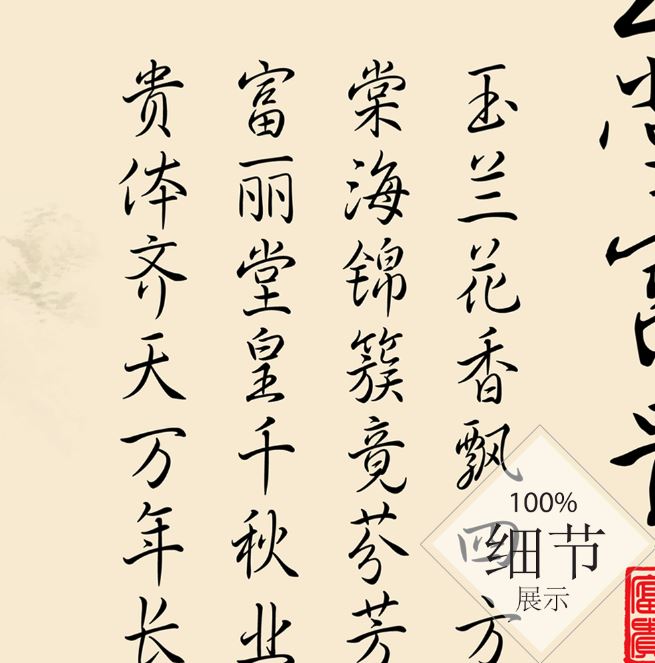 玉兰花香飘四方
棠海锦簇竟芬芳
富丽堂皇千秋业
贵体齐天万年长
100%
细节
展示
富貴